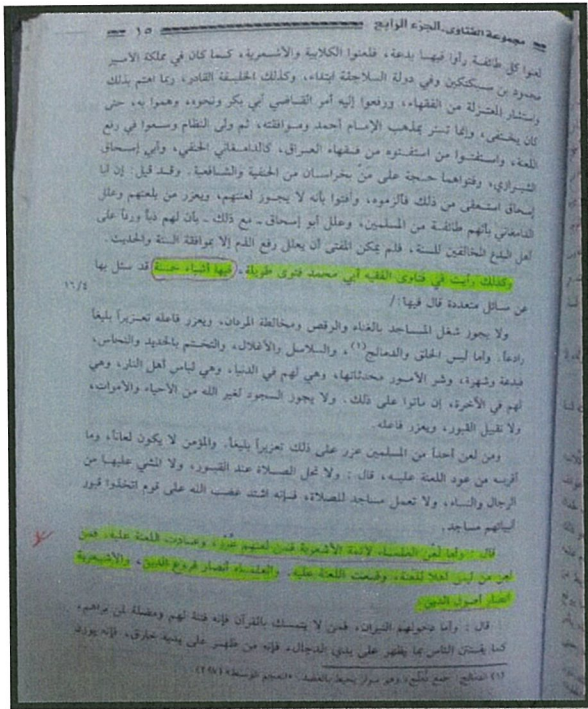 مجموعة الفتاوى-الجزء الرابع ١٥
لعنوا كل طائفة رأوا فيها بدعة، فلعنوا الكلابية والأشعرية، كما كان في مملكة الأمير
محمود بن سبكتكين وفي دولة السلاجقة ابتداء، وكذلك الخليفة القادر، ربما اهتم بذلك
واستشار المعتزلة من الفقهاء، ورفعوا إليه أمر القاضي أبي بكر ونحوه، وهموا به، حتى
كان يختفي، وإنما تستر بمذهب الإمام أحمد وموافقته، ثم ولى النظام وسعوا في رفع
اللعنة، واستفتوا من استفتوه من فقهاء العراق، كالدامغاني الحنفي، وأبي إسحاق
الشيرازي، وفتواهما حجة على من بخراسان من الحنفية والشافعية. وقد قيل: إن أبا
إسحاق استعفى من ذلك فألزموه، وأفتوا بأنه لا يجوز لعنتهم، ويعزر من يلعنهم وعلل
الدامغاني بأنهم طائفة من المسلمين، وعلل أبو إسحاق ـ مع ذلك ـ بأن لهم ذباً ورداً على
أهل البدع المخالفين للسنة، فلم يمكن المفتي أن يعلل رفع الذم إلا بموافقة السنة والحديث.
وكذلك رأيت في فتاوى الفقيه أبي محمد فتوى طويلة، فيها أشياء حسنة قد سئل بها
١٦/٤
عن مسائل متعددة قال فيها:/
ولا يجوز شغل المساجد بالغناء والرقص ومخالطة المردان، ويعزر فاعله تعزيراً بليغاً
رادعاً. وأما لبس الحلق والدمالج(١)، والسلاسل والأغلال، والتختم بالحديد والنحاس،
فبدعة وشهرة، وشر الأمور محدثاتها، وهي لهم في الدنيا، وهي لباس أهل النار، وهي
لهم في الآخرة، إن ماتوا على ذلك. ولا يجوز السجود لغير الله من الأحياء والأموات،
ولا تقبيل القبور، ويعزر فاعله.
ومن لعن أحداً من المسلمين عزر على ذلك تعزيراً بليغاً. والمؤمن لا يكون لعاناً، وما
أقربه من عود اللعنة عليه، قال : ولا تحل الصلاة عند القبور، ولا المشي عليها من
الرجال والنساء، ولا تعمل مساجد للصلاة، فإنه اشتد غضب الله على قوم اتخذوا قبور
أنبيائهم مساجد.
قال : وأما لعن العلماء لأئمة الأشعرية فمن لعنهم عُزِّر، وعادت اللعنة عليه، فمن
لعن من ليس أهلا للعنة، وقعت اللعنة عليه. والعلماء أنصار فروع الدين، والأشعرية
أنصار أصول الدين.
قال : وأما دخولهم النيران، فمن لا يتمسك بالقرآن فإنه فتنة لهم ومضلة لمن يراهم،
كما يفتتن الناس بما يظهر على يدي الدجال، فإنه من ظهر على يديه خارق، فإنه يوزن
(١) الدمالج: جمع دُمْلُج، وهو سوار يحيط بالعضد. «المعجم الوسيط»